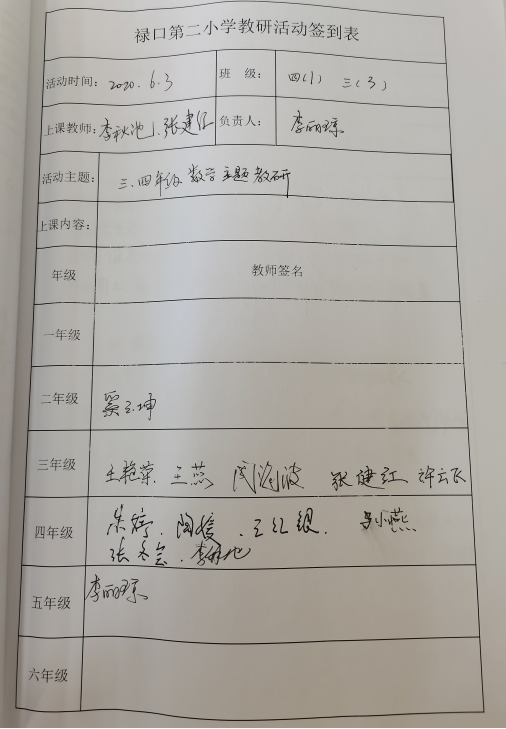 禄口第二小学教研活动签到表
活动时间: 2020.6.3 班 级: 四(1) 三(3)
上课教师: 李秋池、张建红 负责人: 李丽琼
活动主题: 三、四年级数学主题教研
上课内容:
年级 教师签名
一年级
二年级
三年级 王艳菊 王燕 张建红 许云飞
四年级 朱婷、陶婷、王红银、 小燕
张冬会、李秋池
五年级 李丽琼
六年级